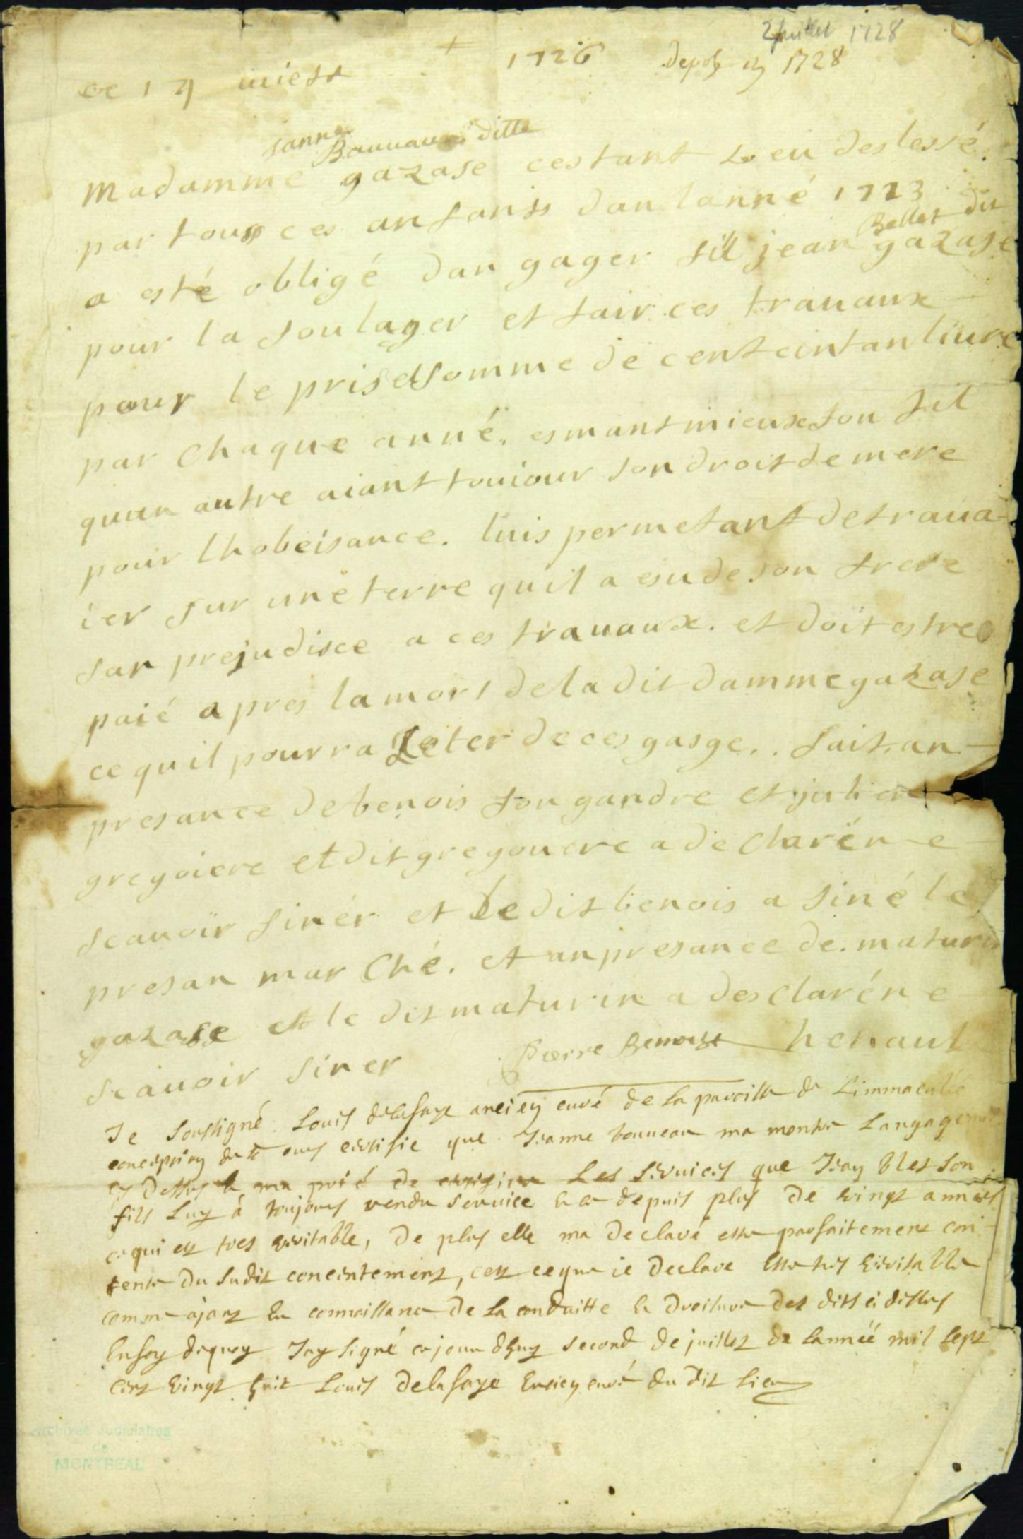 2 Juillet 1728
ce 19 + 1726 depost 1728
janne Bauuau ditte
Madamme gazase cestant veu deslessé
par tous ces anfants dan lanné 1723
Bellet dit
a esté obligé dan gager fil jean gazase
pour la soulager et fair ces trauaux
pour le prise somme de cent cintan liure
par chaque anné. esmant mieux son fil
quun autre aiant toujour son droit de mere
pour lhobeisance. luis permetant de traua
ier sur une terre quil a eu de son frere
san prejudisce a ces trauaux. et doit estre
paié apres la mort de la dit damme gazase
ce quil pourra Reter de ces gasge.. fait. an
presance de benois son gandre et julien
gregoiere et dit gregouere a de Clarér ne
scauoir sinér et le dit benois a siné le
presan mar Ché. et an presance de. maturin
gazase et le dit maturin a des clarér ne
scauoir siner Pierre Benoist henaut
Je Sousigné Louis delafaye ancien curé de la paroisse de Limmaculée
conception certifie que Jeanne bonneau ma montré Langagement
cy dessus ma prié de Les seruices que Jean blet son
fils Luy a toujours rendu seruice la depuis plus de vingt années
ce qui est tres veritable, de plus elle ma declaré estre parfaitement con
tente du Sudit concentement, cest ce que ie declare estre tres veritable
comme ayant eu connoissance de La conduitte la droiture des dits ci dessus
En foy dequoy Jay signé ce jourdhuy second de juillet de lannée mil sept
cens vingt huit Louis Delafaye Encien curé du dit lieu
Archives Judiciaires
de
MONTREAL